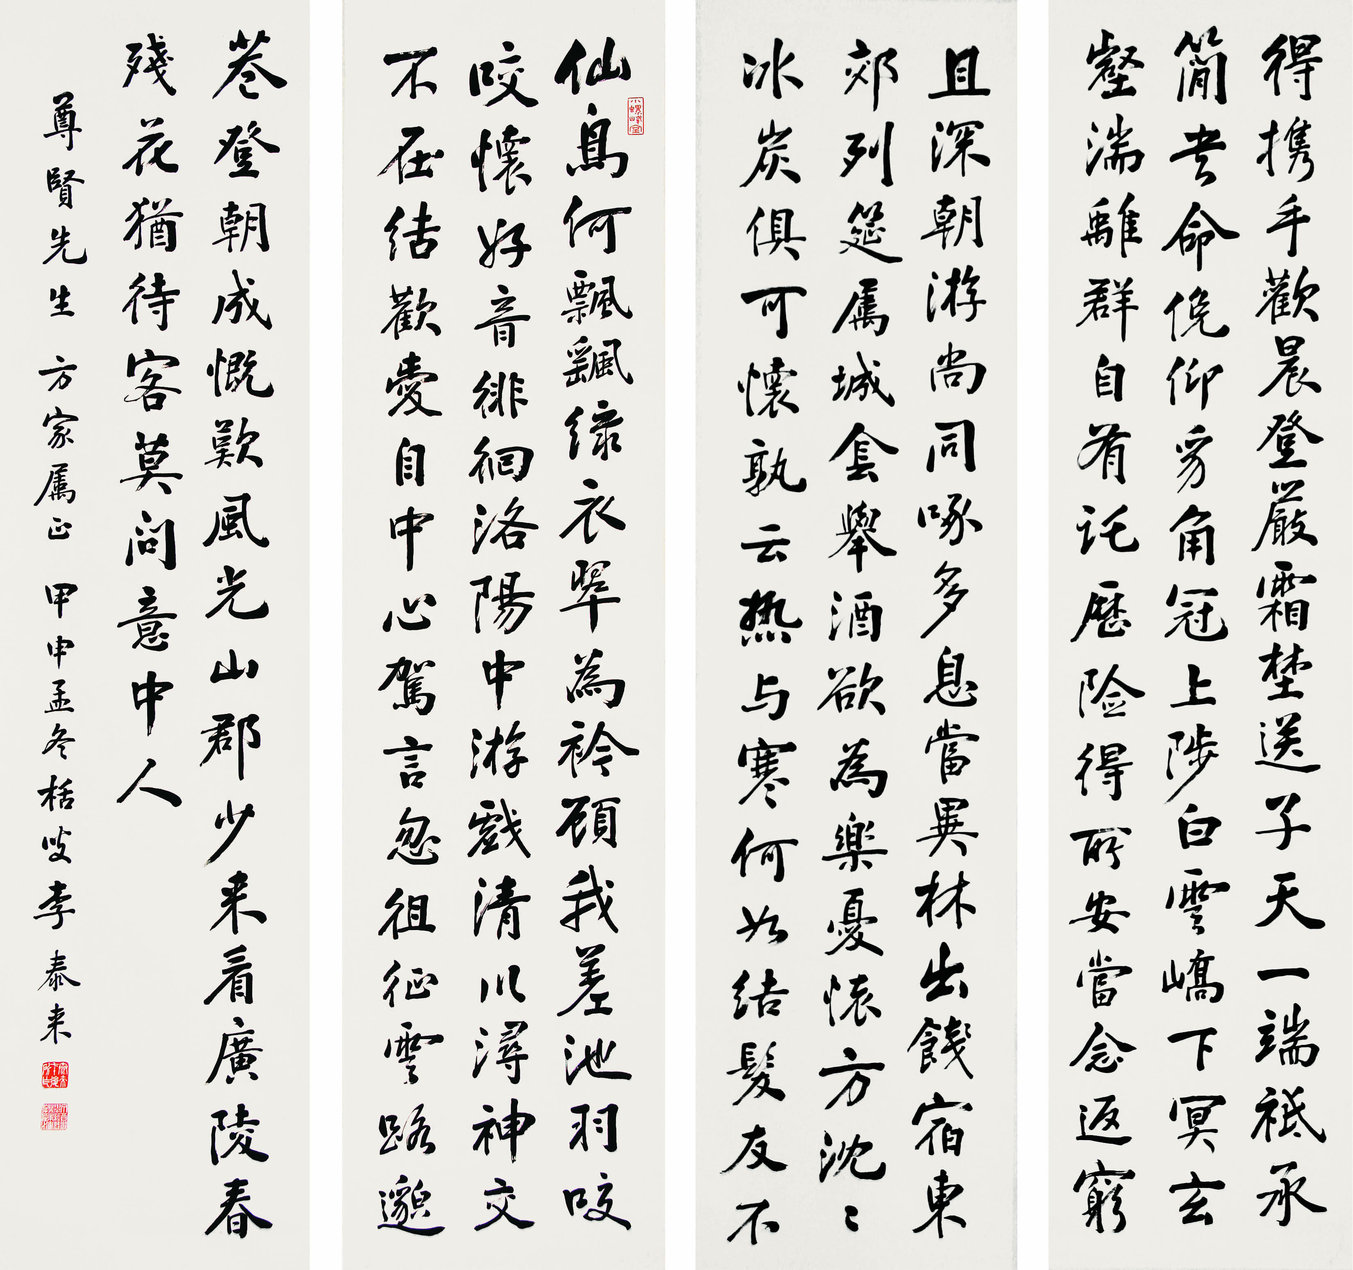 得携手歡晨登嚴霜埜送子天一端祗承
簡書命俛仰豸角冠上陟白雲嶠下冥玄
壑湍離群自有託歷险得所安當念返窮
且深朝游尚同啄夕息當異林出餞宿東
郊列筵属城侌舉酒欲為樂憂懷方沈〻
冰炭俱可懷孰云热与寒何如結髮友不
仙鳥何飄飖绿衣翠為衿顧我差池羽咬
咬懷好音徘徊洛陽中游戲清川潯神交
不在结歡愛自中心駕言忽徂征雲路邈
巷登朝成慨歎風光山郡少来看廣陵春
殘花猶待客莫问意中人
尊賢先生 方家属正 甲申孟冬栝叟李泰来